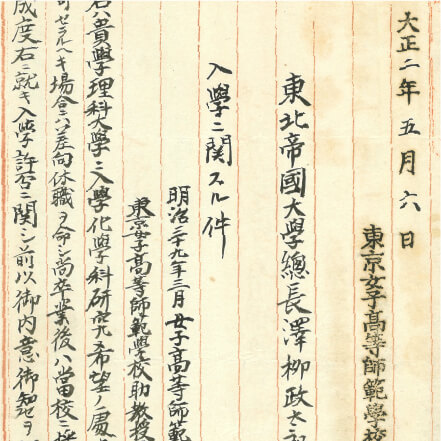 大正二年五月六日
東京女子高等師範學校
東北帝國大學總長澤柳政太
入學ニ関スル件
明治三十九年三月女子高等師範
東京女子高等師範學校助教授
右ハ貴學理科大學ニ入學化學科研究希望ノ處
可セラルヘキ場合ニハ差向休職ヲ命シ尚卒業後ハ當校ニ
成度右ニ就キ入學許否ニ関シ前以御内意御知ヲ